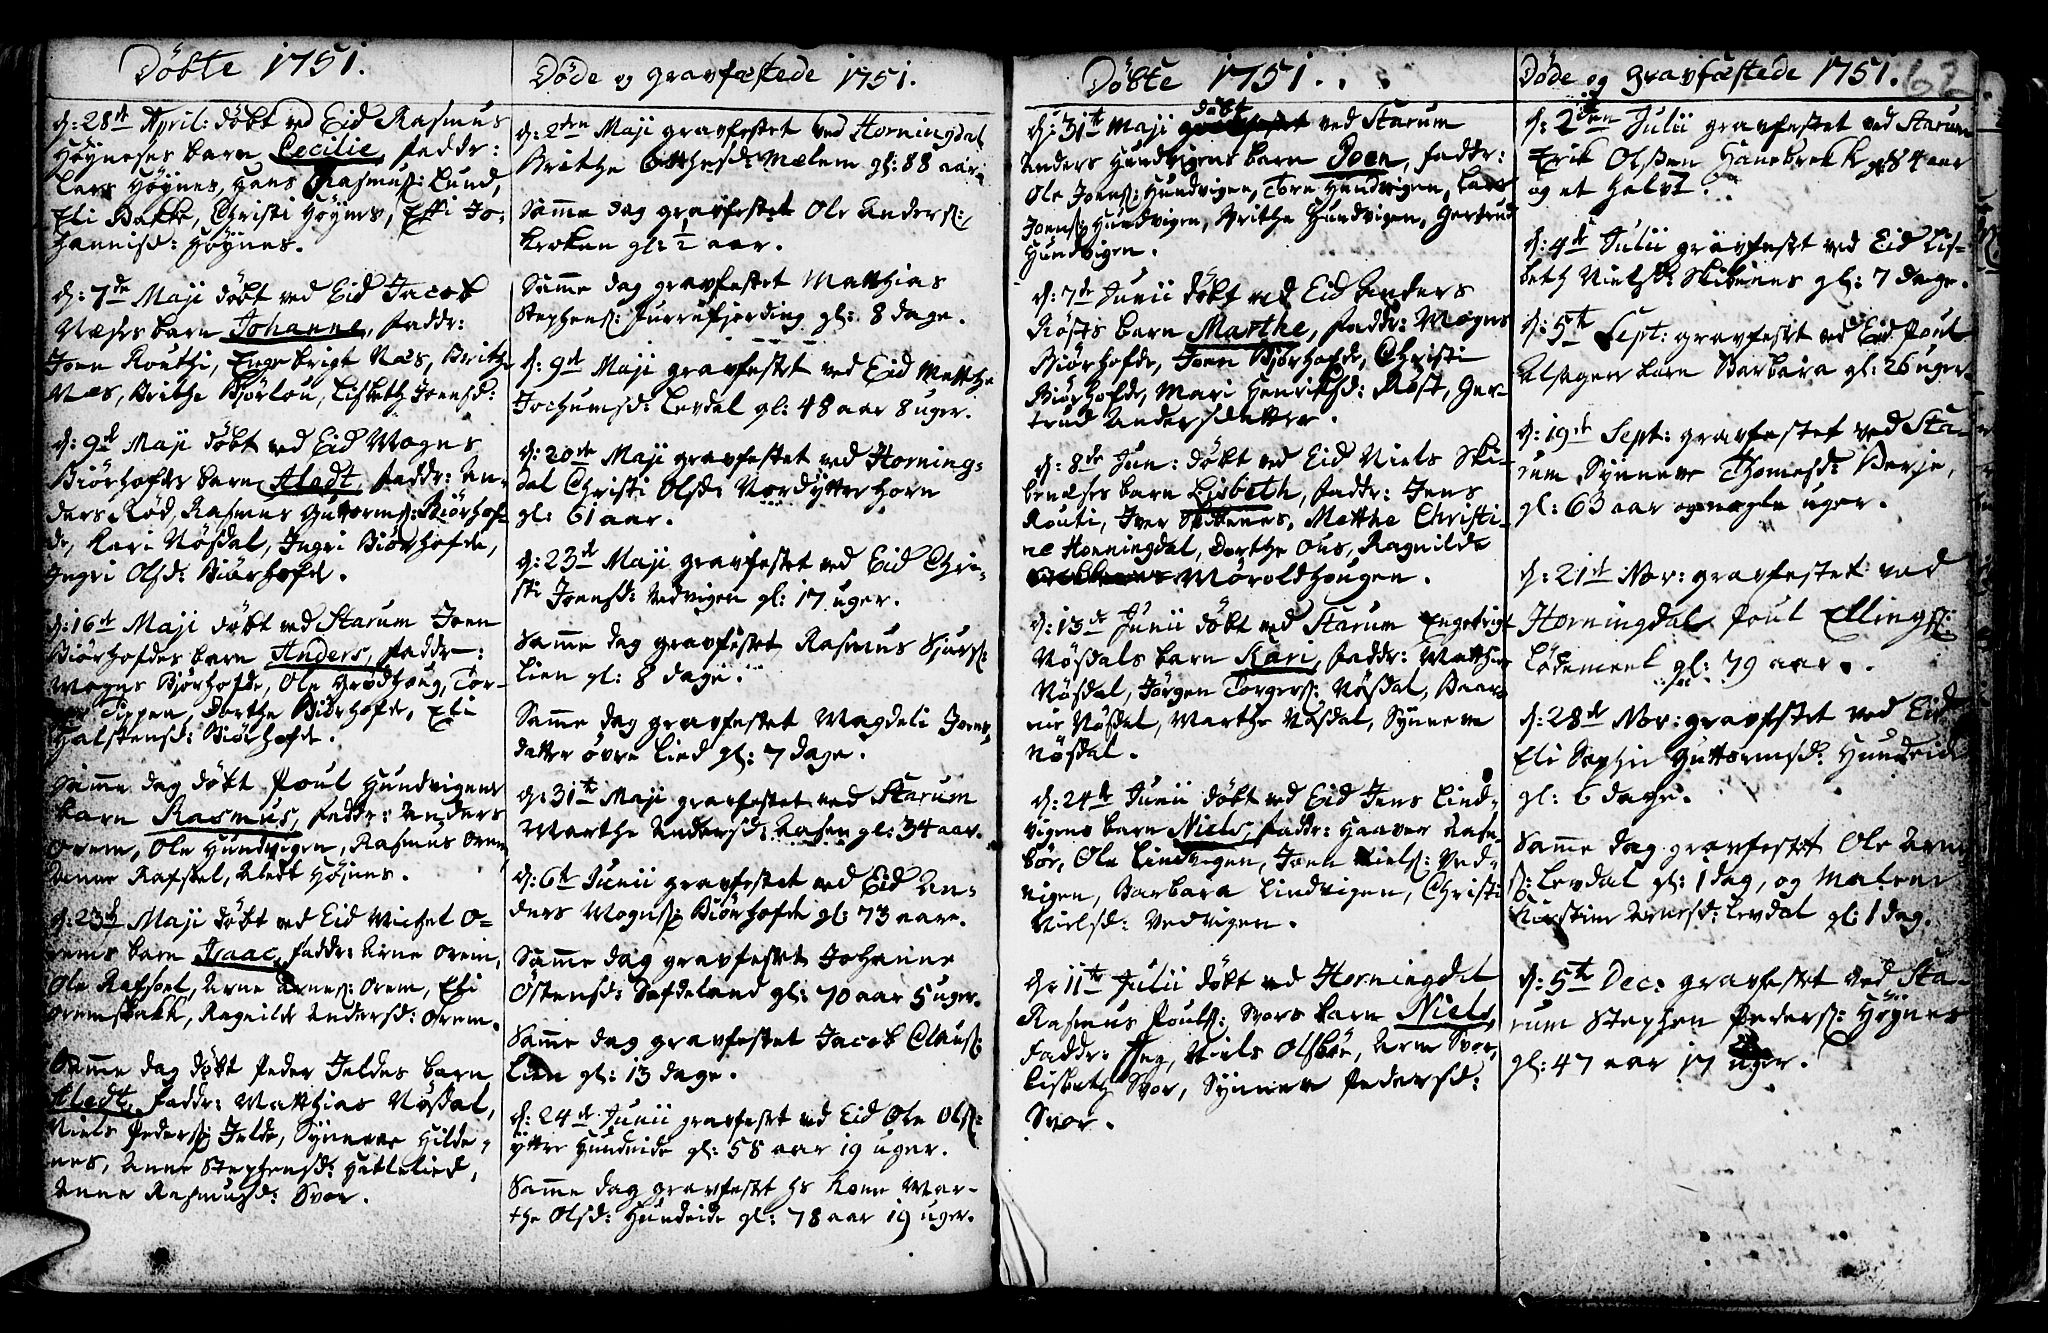 Döbte 1751.
d: 28de April: döbt ved Eid Rasmus
Höyneses barn Cecilie, faddr:
Lars Höynes, Hans Rasmuss: Lund,
Eli Bakke, Christi Höynes, Effi Jo-
hannisd: Höynes.
d: 7de Maji döbt ved Eid Jacob
Næses barn Johanne, faddr:
Joen Routhi, Engebrigt Næs, Brithe
Næs, Brithe Bjørlou, Lisbeth Joensd:
d: 9de Maji döbt ved Eid Mogns
Biörhofdes barn Aladt, faddr: An-
ders Röd, Rasmus Guttorms: Biörhof-
de, Kari Nösdal, Ingri Biörhofde,
Ingri Olsd: Biörhofde.
d: 16de Maji döbt ved Starum Joen
Biörhofdes barn Anders, faddr:
Mogns Bjørhofde, Ole Grodhoug, Tor-
Tippen, Dorthe Biörhofde, Eli
Halstensd: Biörhofde.
Samme dag döbt Poul Hundvigens
barn Rasmus, faddr: Anders
Orem, Ole Hundvigen, Rasmus Orem,
Anne Rafstel, Aledt Höjnes.
d: 23de Maji döbt ved Eid Michel O-
rems barn Isaac, faddr: Arne Orem,
Ole Rafstel, Arne Arnes: Orem, Eli
Oremsbakk, Ragnilde Andersd: Orem.
Samme dag döbt Peder Jeldes barn
Aledt, faddr: Matthias Nösdal,
Niels Peders: Jelde, Synneve Hilde-
nes, Anne Stephensd: Hattelied,
Anne Rasmusd: Svor.
Döde og gravfæstede 1751.
d: 2den Maji gravfestet ved Horningdal
Brithe Otthesd: Mælem gl: 88 aar.
Samme dag gravfestet Ole Anders:
Kroken gl: ½ aar.
Samme dag gravfestet Matthias
Stephens: Furrufjording gl: 8 dage.
d: 9de Maji gravfestet ved Eid Metthe
Jochumsd: Levdal gl: 48 aar 8 uger.
d: 20de Maji gravfestet ved Horning-
dal Christi Olsd: Nordytterhorn
gl: 61 aar.
d: 23de Maji gravfestet ved Eid Chri-
sti Joensd: Vedvigen gl: 17 uger.
Samme dag gravfestet Rasmus Sjurs:
Lien gl: 8 dage.
Samme dag gravfestet Magdeli Joens-
datter övre Lied gl: 7 dage.
d: 31te Maji gravfestet ved Starum
Marthe Andersd: Aasen gl: 34 aar.
d: 6te Junii gravfestet ved Eid An-
ders Mogns: Biörhofde gl: 73 aar.
Samme dag gravfestet Johanne
Östensd: Sefdeland gl: 70 aar 5 uger.
Samme dag gravfestet Jacob Claus:
Lien gl: 13 dage.
d: 24de Junii gravfestet ved Eid Ole Ols:
ytter Hundeide gl: 58 aar 19 uger.
Samme dag gravfestet hs kone Mar-
the Olsd: Hundeide gl: 78 aar 19 uger.
Döbte 1751.
d: 31te Maji döbt ved Starum
Anders Hundvigens barn Joen, faddr:
Ole Joens: Hundvigen, Tore Hundvigen, Lars
Joens: Hundvigen, Brithe Hundvigen, Gertrud
Hundvigen.
d: 7de Junii döbt ved Eid Anders
Rösts barn Marthe, faddr: Mogns
Biörhofde, Joen Bjørhofde, Christi
Biörhofde, Mari Henriksd: Röst, Ger-
trud Andersdatter.
d: 8de Jun: döbt ved Eid Niels Ski-
beneses barn Lisbeth, faddr: Jens
Routi, Iver Skibenes, Metthe Christi-
ne Horningdal, Dorthe Ous, Ragnilde
Möroldhougen.
d: 13de Junii döbt ved Starum Engebrigt
Nösdals barn Kari, faddr: Matthias
Nösdal, Jörgen Torgers: Nösdal, Baar-
nie Nösdal, Marthe Nösdal, Synneve
Nösdal.
d: 24de Junii döbt ved Eid Jens Lind-
vigens barn Niels, faddr: Haaver Aase-
bör, Ole Lindvigen, Joen Niels: Ved-
vigen, Barbara Lindvigen, Christi
Nielsd: Vedvigen.
d: 11te Julii döbt ved Horningdal
Rasmus Pouls: Svors barn Niels,
faddr: Jeg, Niels Olsböe, Arne Svor,
Lisbeth Svor, Synneve Pedersd:
Svor.
Döde og gravfæstede 1751. 62
d: 2den Julii gravfestet ved Starum
Erik Olssen Hanebrekk gl: 84 aar
og et halvt.
d: 4de Julii gravfestet ved Eid Lis-
beth Nielsd: Skibenes gl: 7 dage.
d: 5te Sept: gravfestet ved Eid Poul
Alsagers barn Barbara gl: 26 uger.
d: 19de Sept: gravfestet ved Sta-
rum Synneve Thomesd: Berje,
gl: 63 aar og nogle uger.
d: 21de Nov: gravfestet ved
Horningdal Poul Ellings:
Lödemeel gl: 79 aar.
d: 28de Nov: gravfestet ved Eid
Eli Sophie Guttormsd: Hundeide
gl: 6 dage.
Samme dag gravfestet Ole Arne-
s: Levdal gl: 1 dag, og Malene
Kirstine Arnesd: Levdal gl: 1 dag.
d: 5te Dec: gravfestet ved Sta-
rum Stephen Peders: Höynes
gl: 47 aar 17 uger.